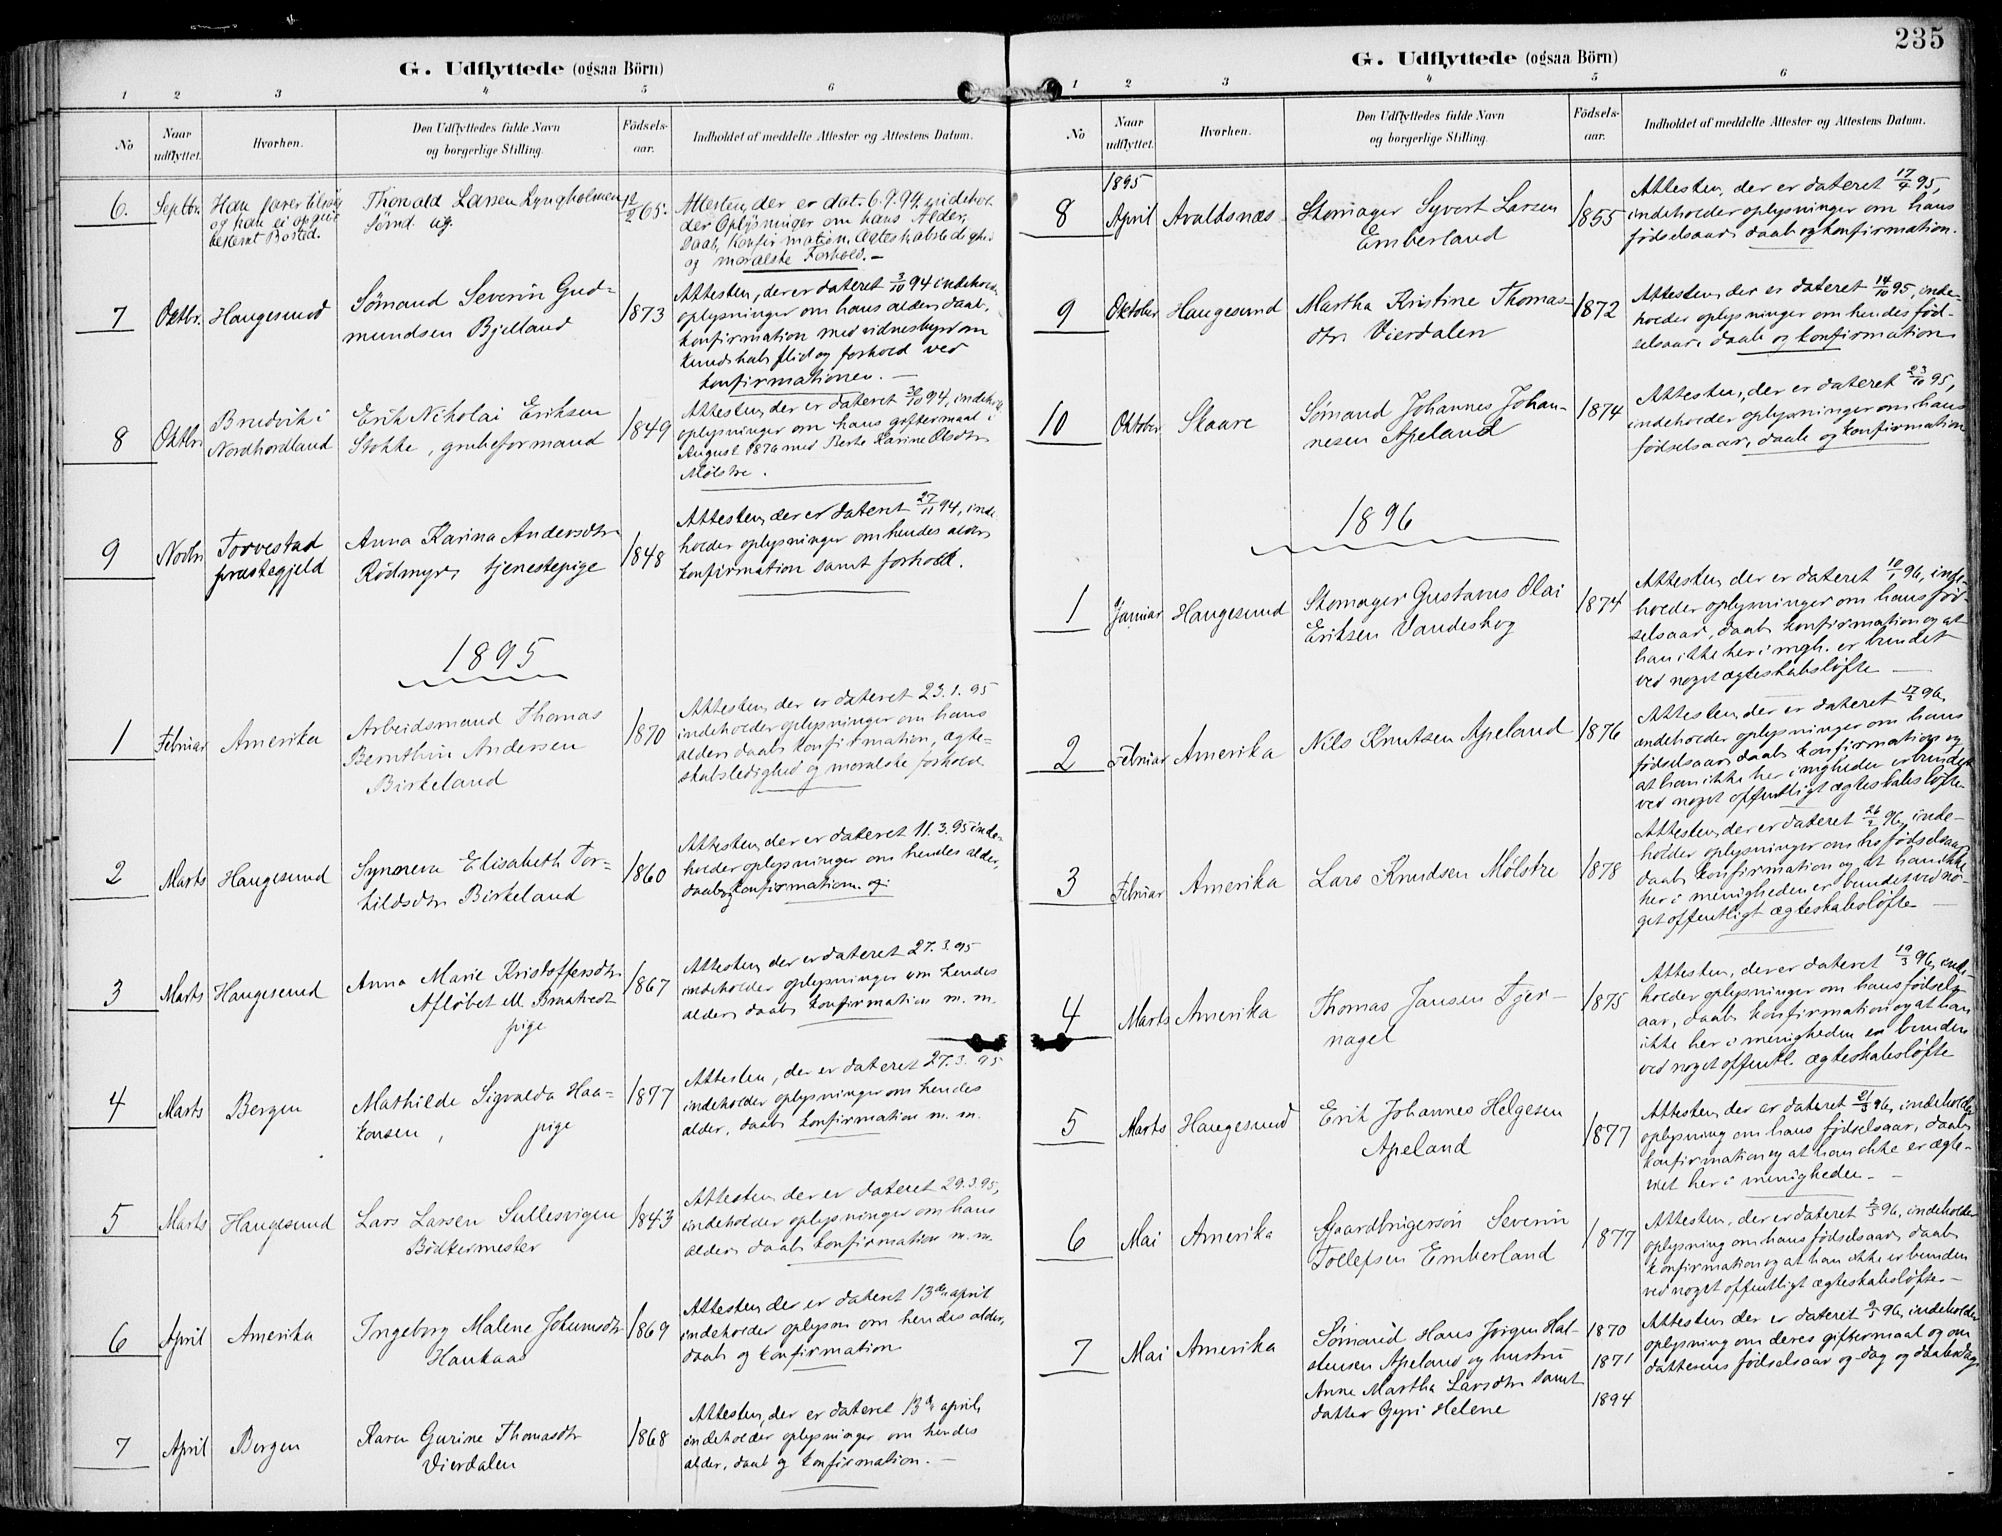 G. Udflyttede (ogsaa Börn)
1 2 3 4 5 6
No
Naar udflyttet.
Hvorhen.
Den Udflyttedes fulde Navn
og borgerlige Stilling.
Födsels-
aar.
Indholdet af meddelte Attester og Attestens Datum.
6. Septbr.
og han ei opgive
bestemt Bosted.
Thorvald Larsen Lyngholmen
Sömd. ug.
12/2 65.
Attesten, der er dat. 6.9.94, indehol-
der Oplysninger om hans Alder,
Daab, Konfirmation, Ægteskabsledighed
og moralske Forhold. –
7 Oktbr. Haugesund
Sømand Severin Gud-
mundsen Bjelland
1873
Attesten, der er dateret 3/10 94 indeholder
oplysninger om hans alder, daab,
konfirmation med vidnesbyrd om
kundskab, flid og forhold ved
konfirmationen. –
8 Oktbr
Bredvik i
Nordhordland
Erik Nikolai Eriksen
Stokke, grubeformand
1849
Attesten, der er dateret 30/10 94, indeholder
oplysninger om hans giftermaal i
August 1876 med Berte Karine Olsdtr
Mølstre.
9 Novbr
Torvestad
præstegjeld
Anna Karina Andersdtr
Rødmyr, tjenestepige
1848
Attesten, der er dateret 27/11 94, inde-
holder oplysninger om hendes alder,
konfirmation samt forhold.
1895
1 Februar Amerika
Arbeidsmand Thomas
Bernthin Andersen
Birkeland
1870
Attesten, der er dateret 23.1.95
indeholder oplysninger om hans
alder, daab, konfirmation, ægte-
skabsledighed og moralske forhold
2 Marts Haugesund
Synneva Elisabeth Tor-
kildsdtr Birkeland
1860
Attesten, der er dateret 11.3.95 inde-
holder oplysninger om hendes alder,
daab, konfirmation. og
3 Marts Haugesund
Anna Marie Kristoffersdtr
pige
1867
Attesten, der er dateret 27.3.95
indeholder oplysninger om hendes
alder, daab, konfirmation m. m.
4 Marts Bergen
Mathilde Sigvalda Haa-
konsen, pige
1877
Attesten, der er dateret 27.3.95
indeholder oplysninger om hendes
alder, daab, konfirmation m. m.
5 Marts Haugesund
Lars Larsen Sullesvigen
Bødkermester
1843
Attesten, der er dateret 29.3.95,
indeholder oplysninger om hans
alder, daab, konfirmation m. m.
6 April Amerika
Ingeborg Malene Johnnsdtr
Haukaas
1869
Attesten, der er dateret 13de april
indeholder oplysn om hendes alder,
daab og konfirmation
7 April Bergen
Karen Gurine Thomasdtr
Vierdalen
1868
Attesten, der er dateret 13de april,
indeholder oplysninger om hendes
alder, daab og konfirmation. –
235
G. Udflyttede (ogsaa Börn)
1 2 3 4 5 6
No
Naar udflyttet.
Hvorhen.
Den Udflyttedes fulde Navn
og borgerlige Stilling.
Födsels-
aar.
Indholdet af meddelte Attester og Attestens Datum.
1895
8 April Avaldsnæs
Skomager Syvert Larsen
Emberland
1855
Attesten, der er dateret 17/4 95,
indeholder oplysninger om hans
fødselsaar, daab og konfirmation.
9 Oktober Haugesund
Martha Kristine Thomas-
dtr Vierdalen
1872
Attesten, der er dateret 14/10 95, inde-
holder oplysninger om hendes fød-
selsaar, daab og konfirmation
10 Oktober Skaare
Sømand Johannes Johan-
nesen Apeland
1874
Attesten, der er dateret 23/10 95,
indeholder oplysninger om hans
fødselsaar, daab og konfirmation
1896
1 Januar Haugesund
Skomager Gustavus Olai
Eriksen Vandeskog
1874
Attesten, der er dateret 10/1 96, inde-
holder oplysninger om hans fød-
selsaar, daab, konfirmation og at
han ikke her i mgh. er bundet
ved noget ægteskabsløfte –
2 Februar Amerika
Nils Knutsen Apeland
1876
Attesten, der er dateret 17/2 96,
indeholder oplysninger om hans
fødselsaar, daab, konfirmation og
at han ikke her i mgheden er bundet
ved noget offentligt ægteskabsløfte
3 Februar Amerika
Lars Knudsen Mølstre
1878
Attesten, der er dateret 26/2 96, inde-
holder oplysninger om hs fødselsaar
daab, konfirmation og at han ikke
her i menigheden er bundet ved no-
get offentligt ægteskabsløfte –
4 Marts Amerika
Thomas Jansen Tjer-
nagel
1875
Attesten, der er dateret 19/3 96, inde-
holder oplysninger om hans fødsels-
aar, daab, konfirmation og at han
ikke her i menigheden er bunden
ved noget offentl. ægteskabsløfte
5 Marts Haugesund
Erik Johannes Helgesen
Apeland
1877
Attesten, der er dateret 21/3 96, indeholder
oplysning om hans fødselsaar, daab,
konfirmation og at han ikke er ægte-
viet her i menigheden. –
6 Mai Amerika
Gaardbrugersøn Severin
Tollefsen Emberland
1877
Attesten, der er dateret 2/5 96, indeholder
oplysning om hans fødselsaar, daab,
konfirmation og at han ikke er bunden
ved noget offentligt ægteskabsløfte. –
7 Mai Amerika
Sømand Hans Jørgen Hal-
stensen Apeland og hustru
Anne Martha Larsdtr samt
datter Gyri Helene
1870
1871
1894
Attesten, der er dateret 9/5 96, indeholder
oplysning om deres giftermaal og om
datterens fødselsaar og -dag og daabsdag